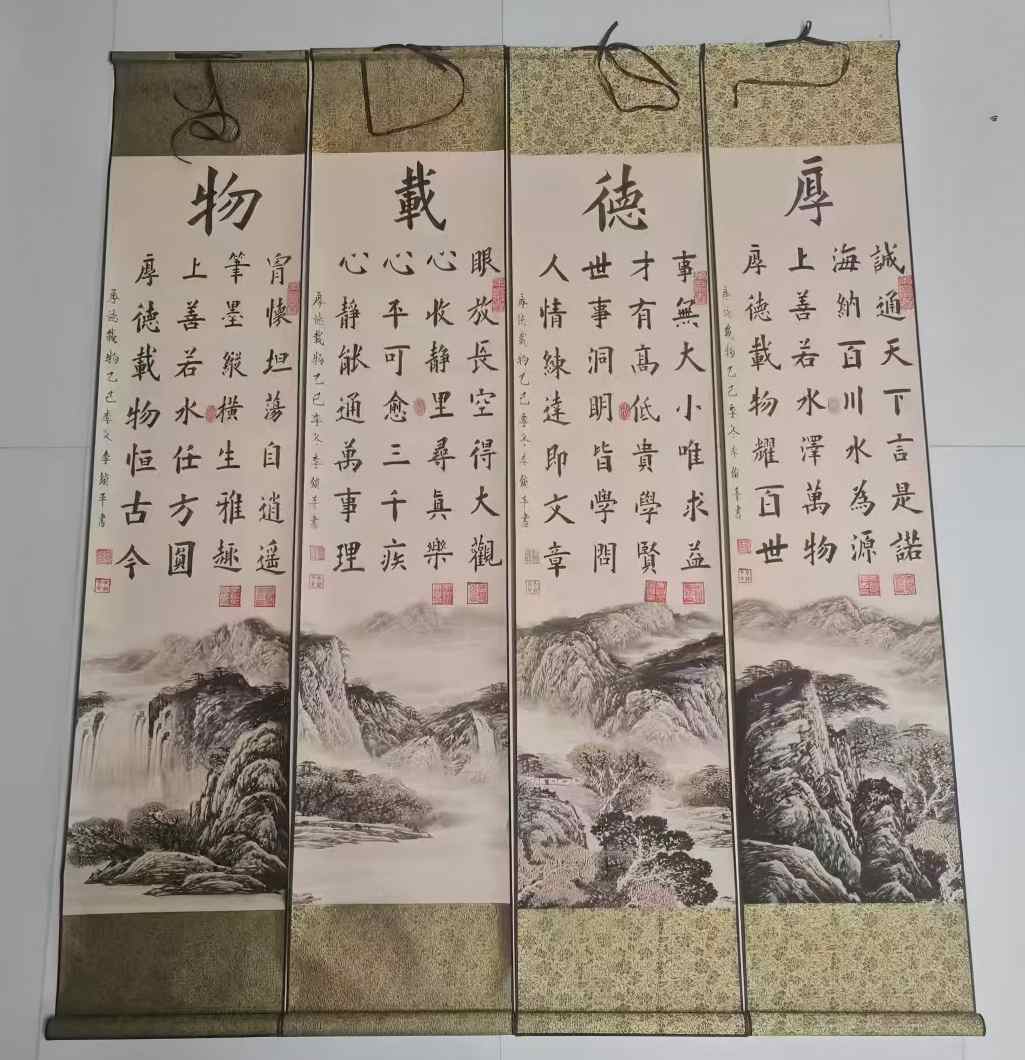 厚
誠通天下言是諾
海納百川水為源
上善若水澤萬物
厚德載物耀百世
厚德載物乙巳季冬李平書
德
事無大小唯求益
才有高低貴學賢
世事洞明皆學問
人情練達即文章
厚德載物乙巳季冬李平書
載
眼放長空得大觀
心收静里尋真樂
心平可愈三千疾
心静能通萬事理
厚德載物乙巳季冬李平書
物
胷懷坦荡自逍遥
筆墨縱横生雅趣
上善若水任方圓
厚德載物恒古今
厚德載物乙巳季冬李平書